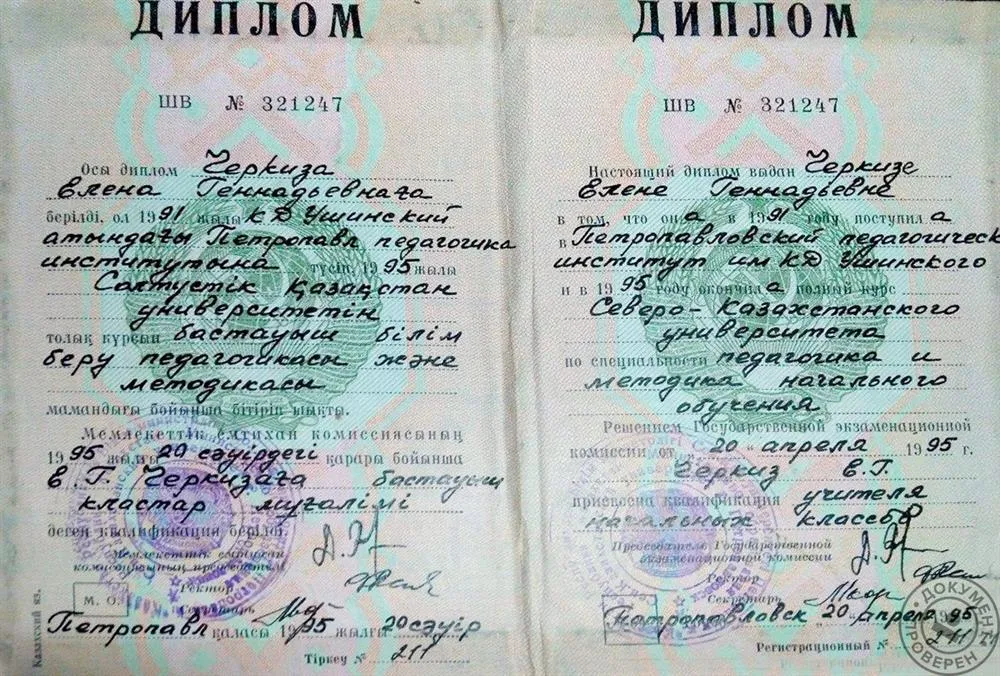 ДИПЛОМ
ШВ № 321247
Осы диплом Черкиза
Елена Геннадьевнаға
берілді, ол 1991 жылы К Д Ушинский
атындағы Петропавл педагогика
институтына түсіп, 1995 жылы
Солтүстік Қазақстан
университетін
толық курсын бастауыш білім
беру педагогикасы және
методикасы
мамандығы бойынша бітіріп шықты.
Мемлекеттік емтихан комиссиясының
1995 жылғы 20 сәуірдегі қарары бойынша
Е. Г. Черкизаға бастауыш
кластар мұғалімі
деген квалификация берілді.
Мемлекеттік емтихан
комиссиясының председателі
Ректор
Секретарь
М. О.
Петропавл қаласы 1995 жылғы 20 сәуір
Тіркеу № 211
Казахский яз.
ДИПЛОМ
ШВ № 321247
Настоящий диплом выдан Черкизе
Елене Геннадьевне
в том, что он а в 1991 году поступил а
в Петропавловский педагогическ
институт им К Д Ушинского
и в 1995 году окончил а полный курс
Северо-Казахстанского
университета
по специальности педагогика и
методика начального
обучения
Решением Государственной экзаменационной
комиссии от „20“ апреля 1995 г.
Черкиз Е. Г.
присвоена квалификация учителя
начальных классов
Председатель Государственной
экзаменационной комиссии
Ректор
Секретарь
Петропавловск „20“ апреля 1995
Регистрационный № 211
ДОКУМЕНТ
ПРОВЕРЕН